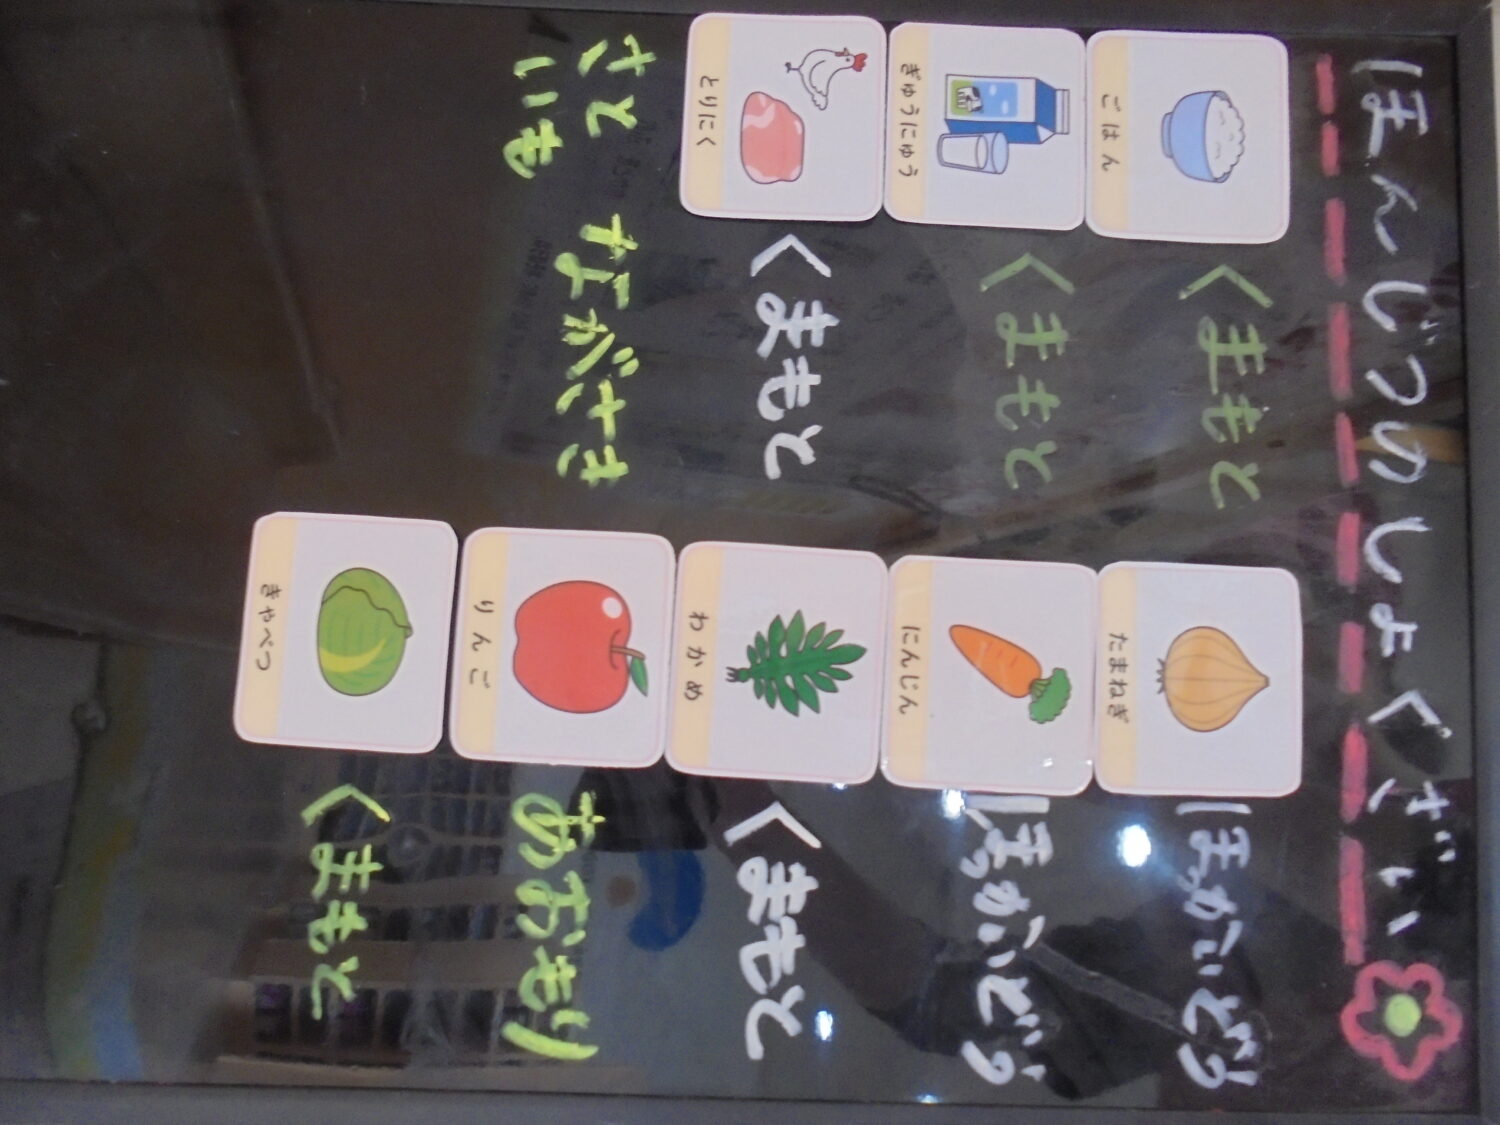 ほんじつのしょくざい
ごはん くまもと
ぎゅうにゅう くまもと
とりにく くまもと
さといも ながさき
たまねぎ ほっかいどう
にんじん ほっかいどう
わかめ くまもと
りんご あおもり
きゃべつ くまもと